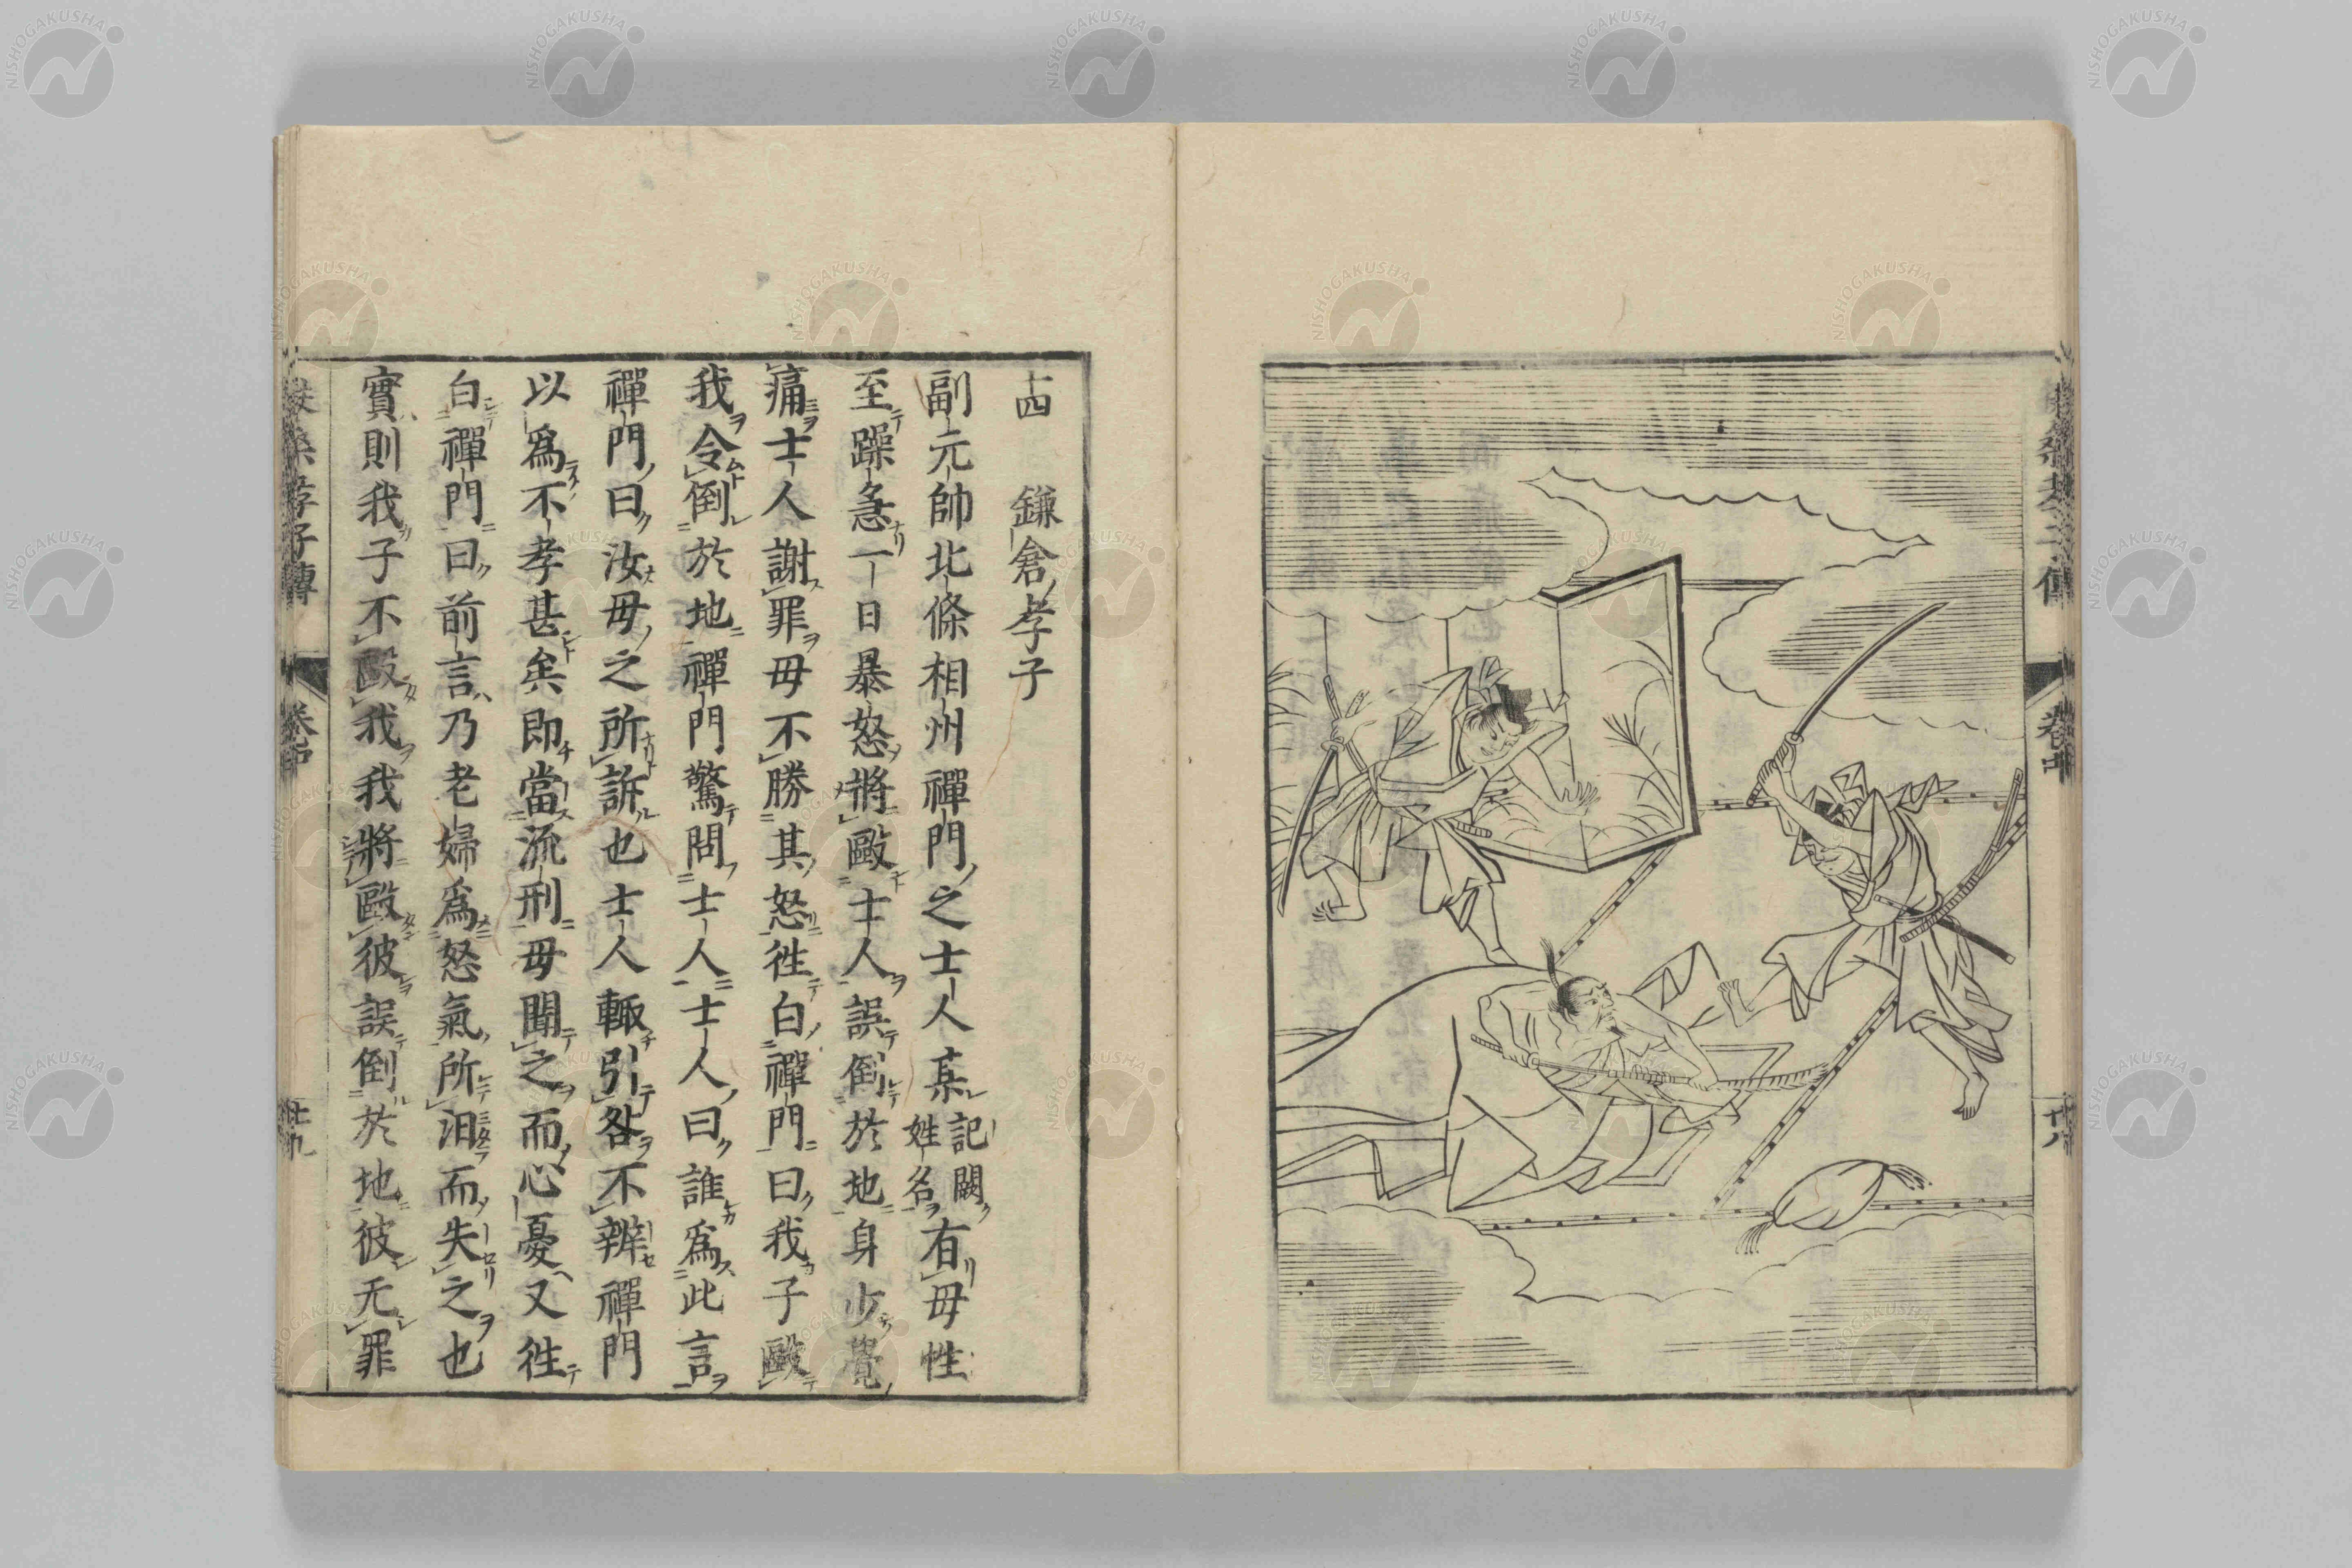 十四 鎌倉孝子
副元帥北條相州禪門之士人某記闕姓名有母性
至躁急一日暴怒將毆士人誤倒於地身少覺
痛士人謝罪母不勝其怒徃白禪門曰我子毆
我令倒於地禪門驚問士人士人曰誰爲此言
禪門曰汝母之所訴也士人輙引咎不辨禪門
以爲不孝甚矣即當流刑母聞之而心憂又徃
白禪門曰前言乃老婦爲怒氣所汨而失之也
實則我子不毆我我將毆彼誤倒於地彼无罪
孝子傳
卷中
卷中
十八
NISHOGAKUSHA